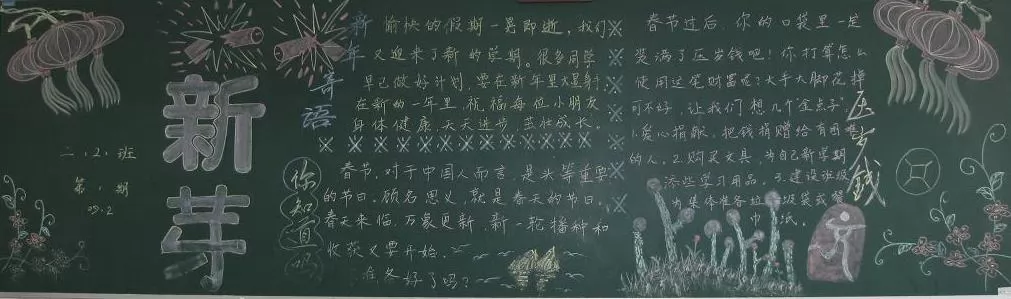 二.(2).班
第1期
09.2
新芽
新年寄语
愉快的假期一晃即逝,我们
又迎来了新的学期。很多同学
早已做好计划,要在新年里大显身
在新的一年里,祝福每位小朋友
身体健康,天天进步,茁壮成长。
你知道吗
春节,对于中国人而言,是头等重要
的节日。顾名思义,就是春天的节日。
春天来临,万象更新,新一轮播种和
收获又要开始。
准备好了吗?
春节过后,你的口袋里一定
装满了压岁钱吧!你打算怎么
使用这笔财富呢?大手大脚花掉
可不好,让我们想几个“金点子”
1.爱心捐献,把钱捐赠给有困难
的人。2.购买文具,为自己新学期
添些学习用品。3.建设班级
为集体准备垃圾袋或餐
巾纸。
压岁钱